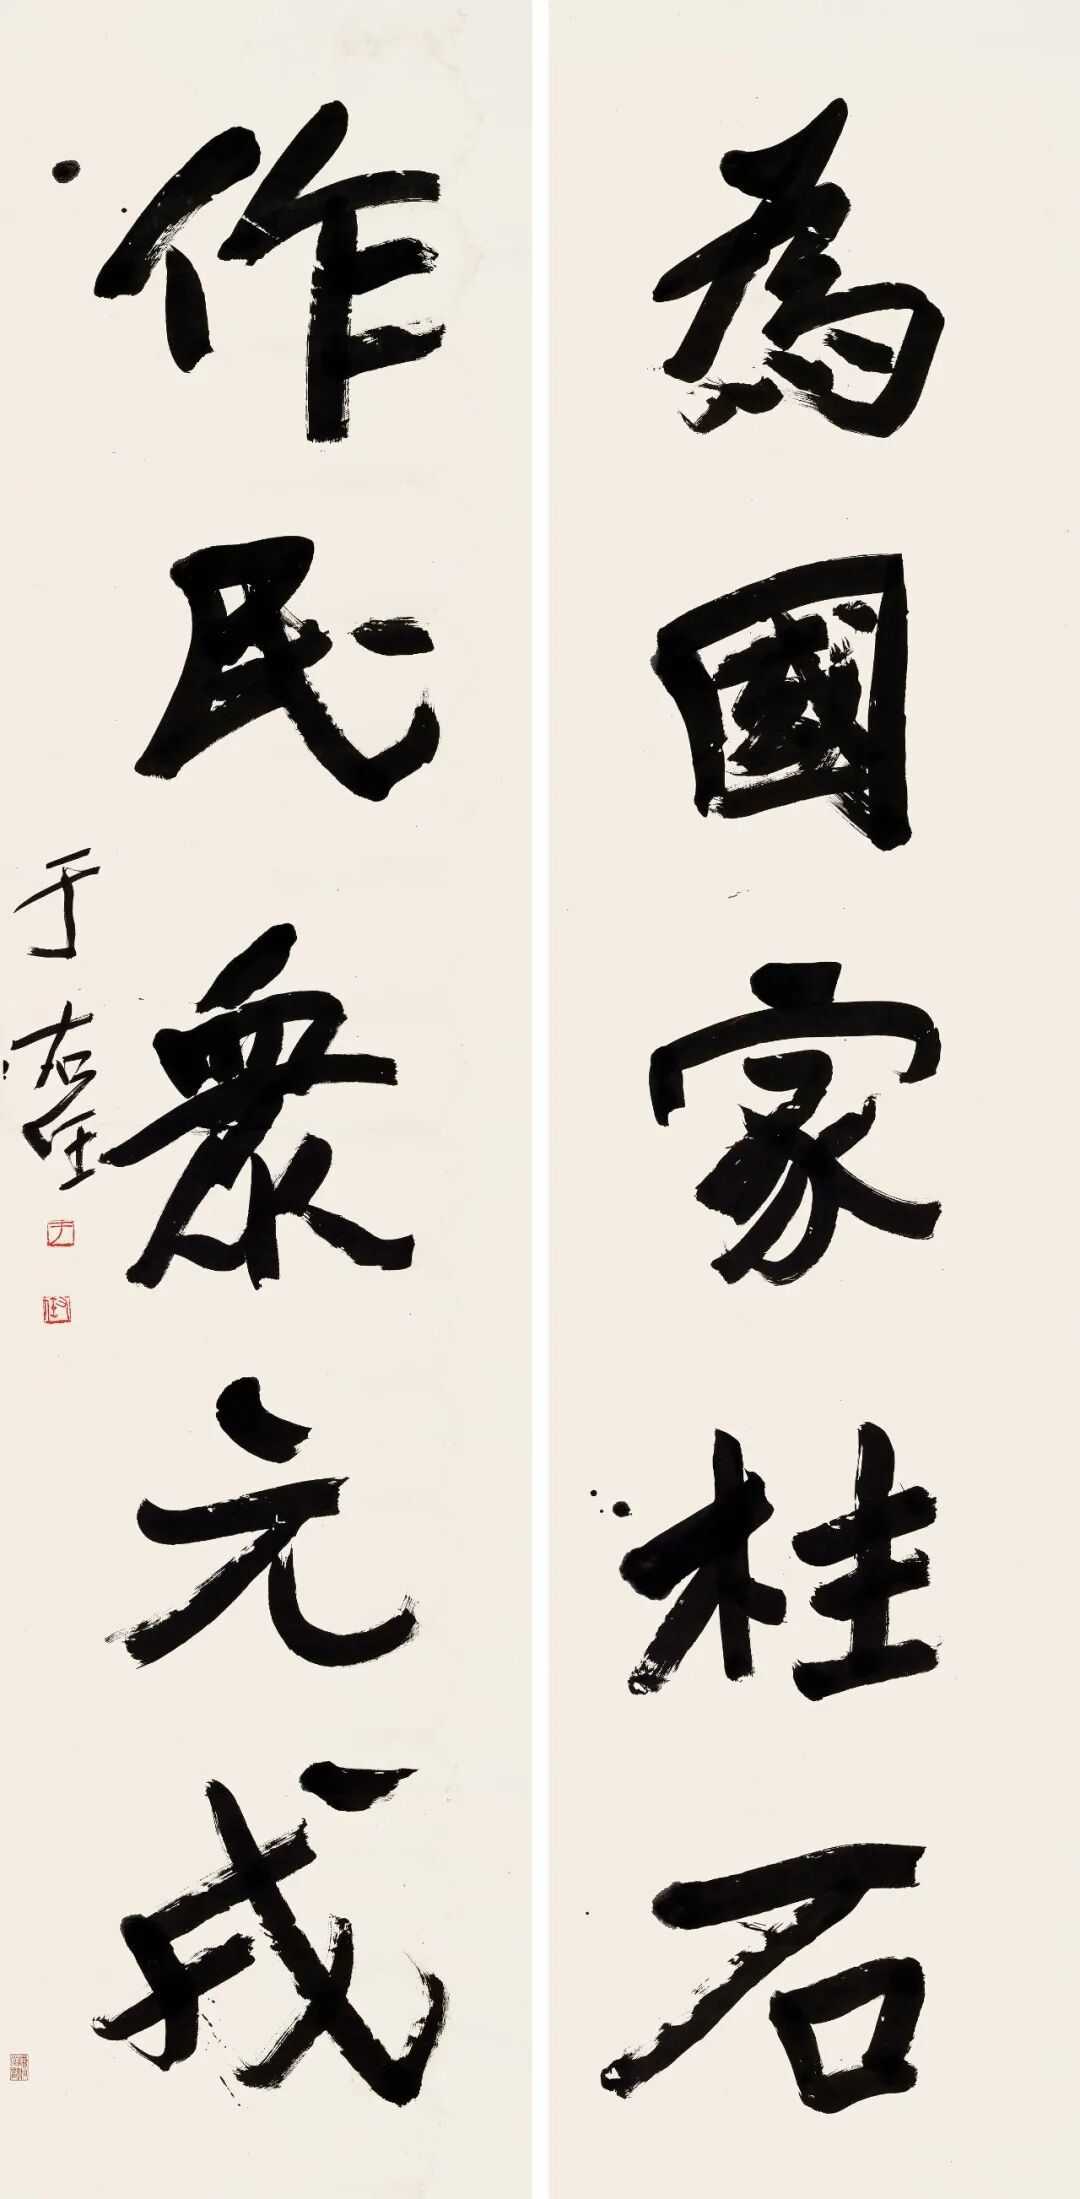 為國家柱石
作民衆元戎
于右任